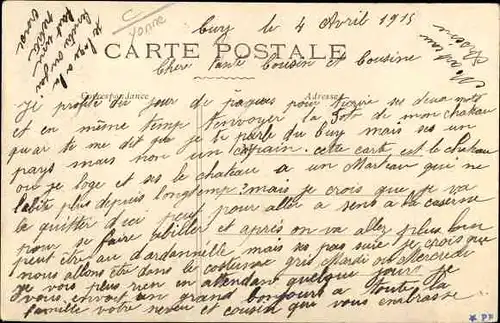 YONNE
Cuzy le 4 Avril 1915
CARTE POSTALE
Chere tante Cousin et Cousine
Correspondance
Adresse
Je profite du jour de pâques pour t'ecrire ses deux mots
et en même temp t'envoyer la foto de mon chateau
quar te me dit que je te parle du Cuzy mais ses un
pays mais non un copain. cette carte est le chateau
ou je loge et ses le chateau a un Marteau qui ne
labite plus depuis longtemp. mais je crois que je va
la quitter d'ici peut pour aller a sens a la caserne
pour se faire abiller et après on va allez plus loin
peut être au dardannelle mais ses pas sure je crois que
nous allons être dans le costume gris Mardi ou Mercredi
je vois plus rien en attendan quelque jours je
vous envoit un grand bonjours a toute la
famille votre neveu et cousin qui vous embrasse
je loge a la
PF